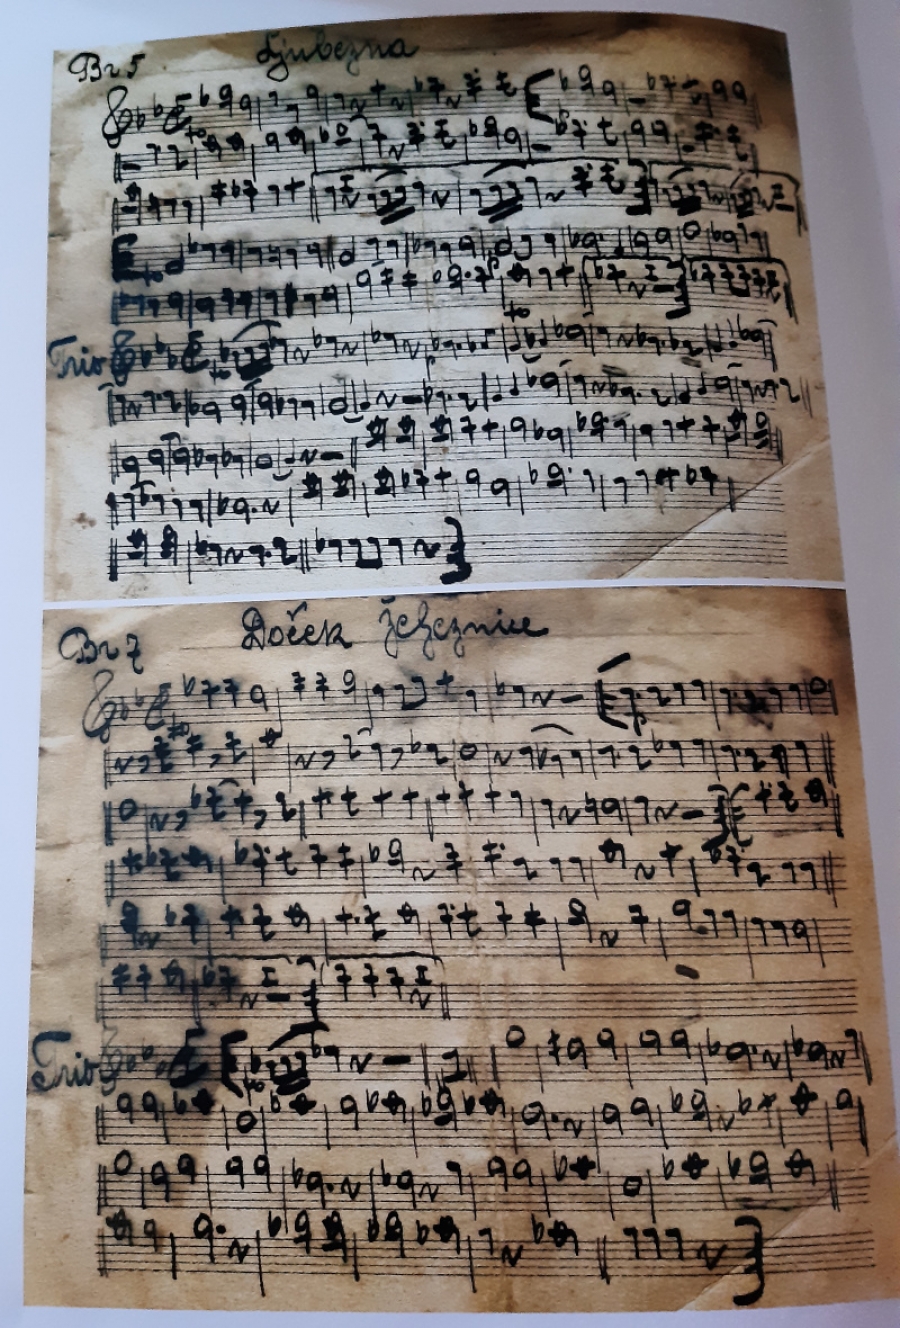 Br 5 Ljubezna
Trio
Br 7 Doček železnice
Trio